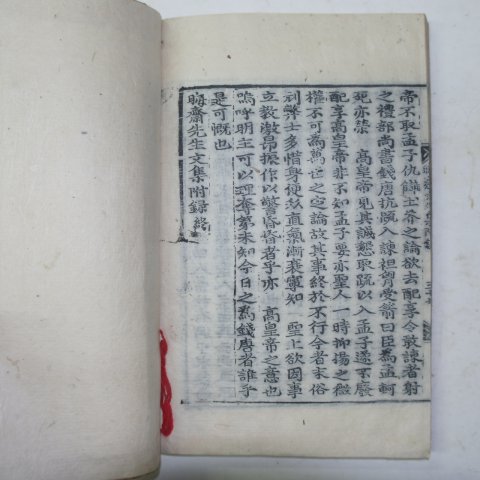 帝不取孟子仇讎土芥之論欲去配享令敢諫者射
之禮部尚書錢唐抗疏入諫袒胷受箭曰臣爲孟軻
死亦榮 高皇帝見其誠懇取疏以入孟子遂不廢
配享高皇帝非不知孟子要亦聖人一時抑揚之微
權不可爲萬世之定論故其事終於不行今者末俗
利弊士多惜身便私直氣漸衰寧知 聖上欲因事
立教激昂振作以警昏昏者乎亦 高皇帝之意也
嗚呼明主可以理奪第未知今日之爲錢唐者誰乎
是可慨也
晦齋先生文集附錄終